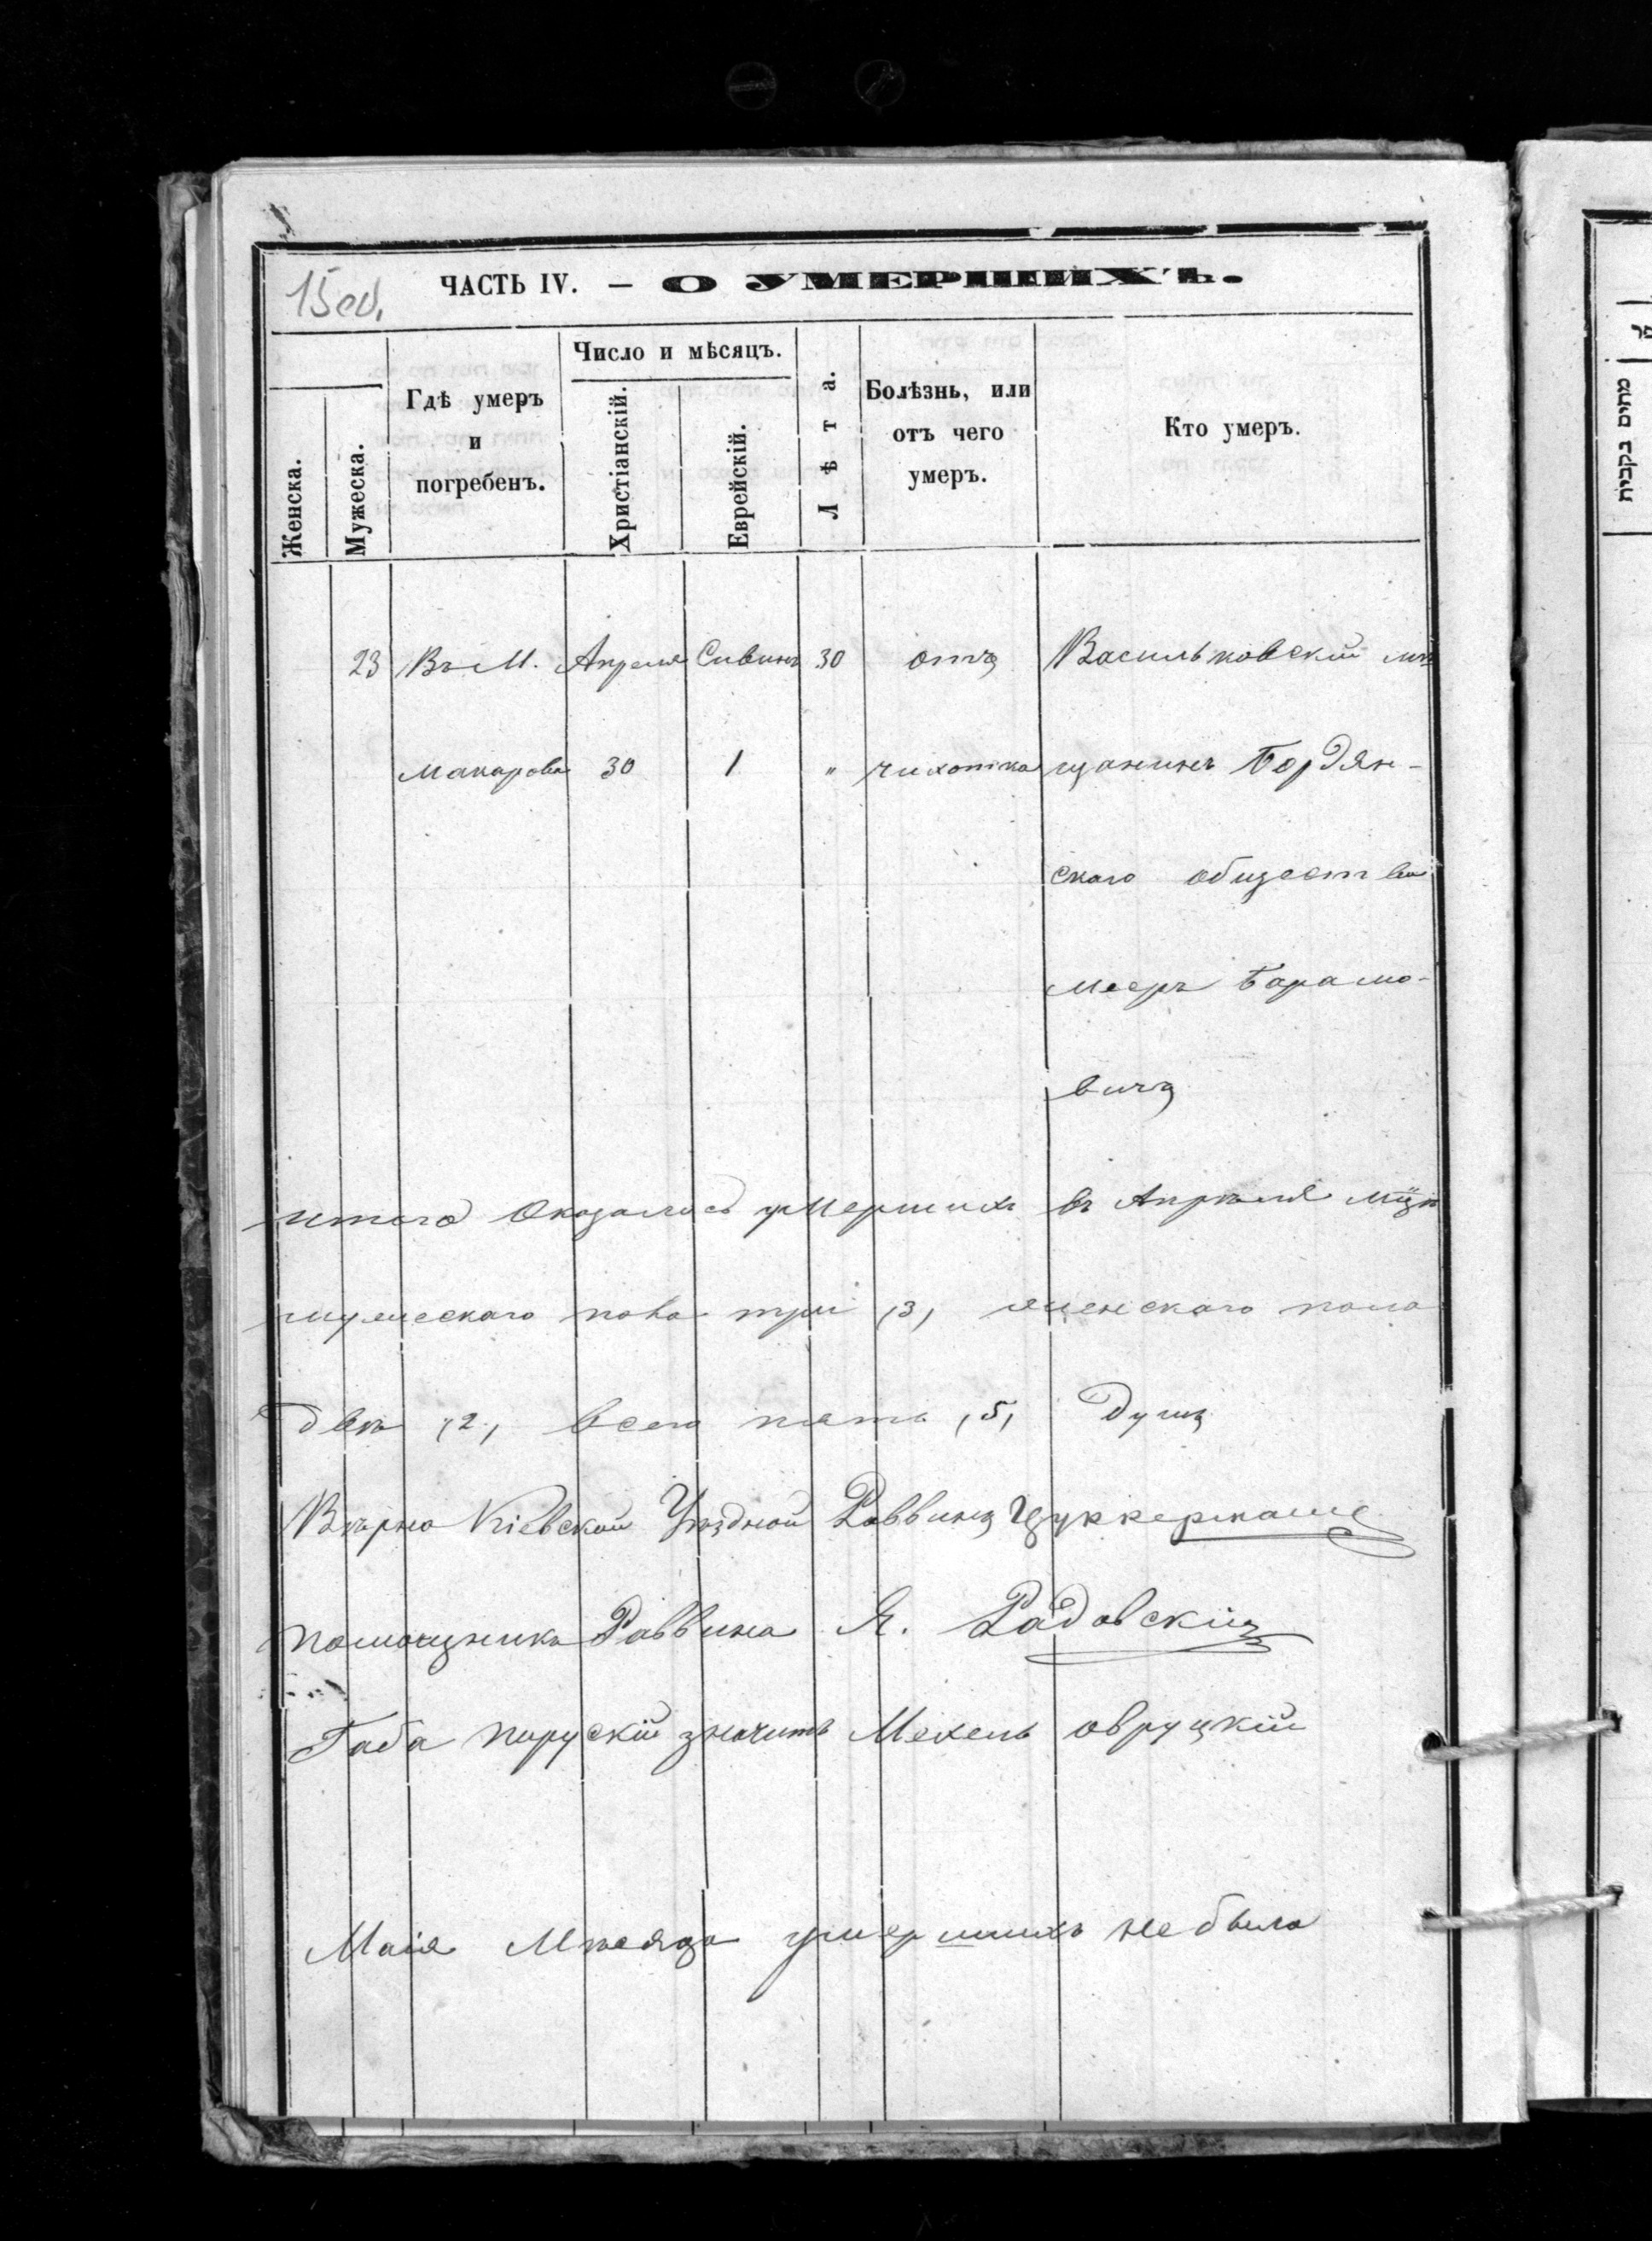 15об.
ЧАСТЬ IV. — О УМЕРШИХЪ.
Женска.
Мужеска.
Гдѣ умеръ
и
погребенъ.
Число и мѣсяцъ.
Христіанскій.
Еврейскій.
Лѣта.
Болѣзнь, или
отъ чего
умеръ.
Кто умеръ.
23 Въ М. Апреля Сивинъ 30 отъ Васильковскій мѣ
Макарова 30 1 " чихотка щанинъ Бордян-
скаго общества
Мееръ Барамо-
вичъ
итого Оказалось умершихъ въ Апрѣлѣ мцѣ
мужескаго пола три (3) женскаго пола
двѣ (2) всего пять (5) Душъ
Вѣрно Кіевской Уѣздной Раввинъ Цуккерманъ
помощникъ Раввина Я. Радовскій
Габа значитъ Мехель овруцкій
Маія Мѣсяца умершихъ небыло
מתים בקבית